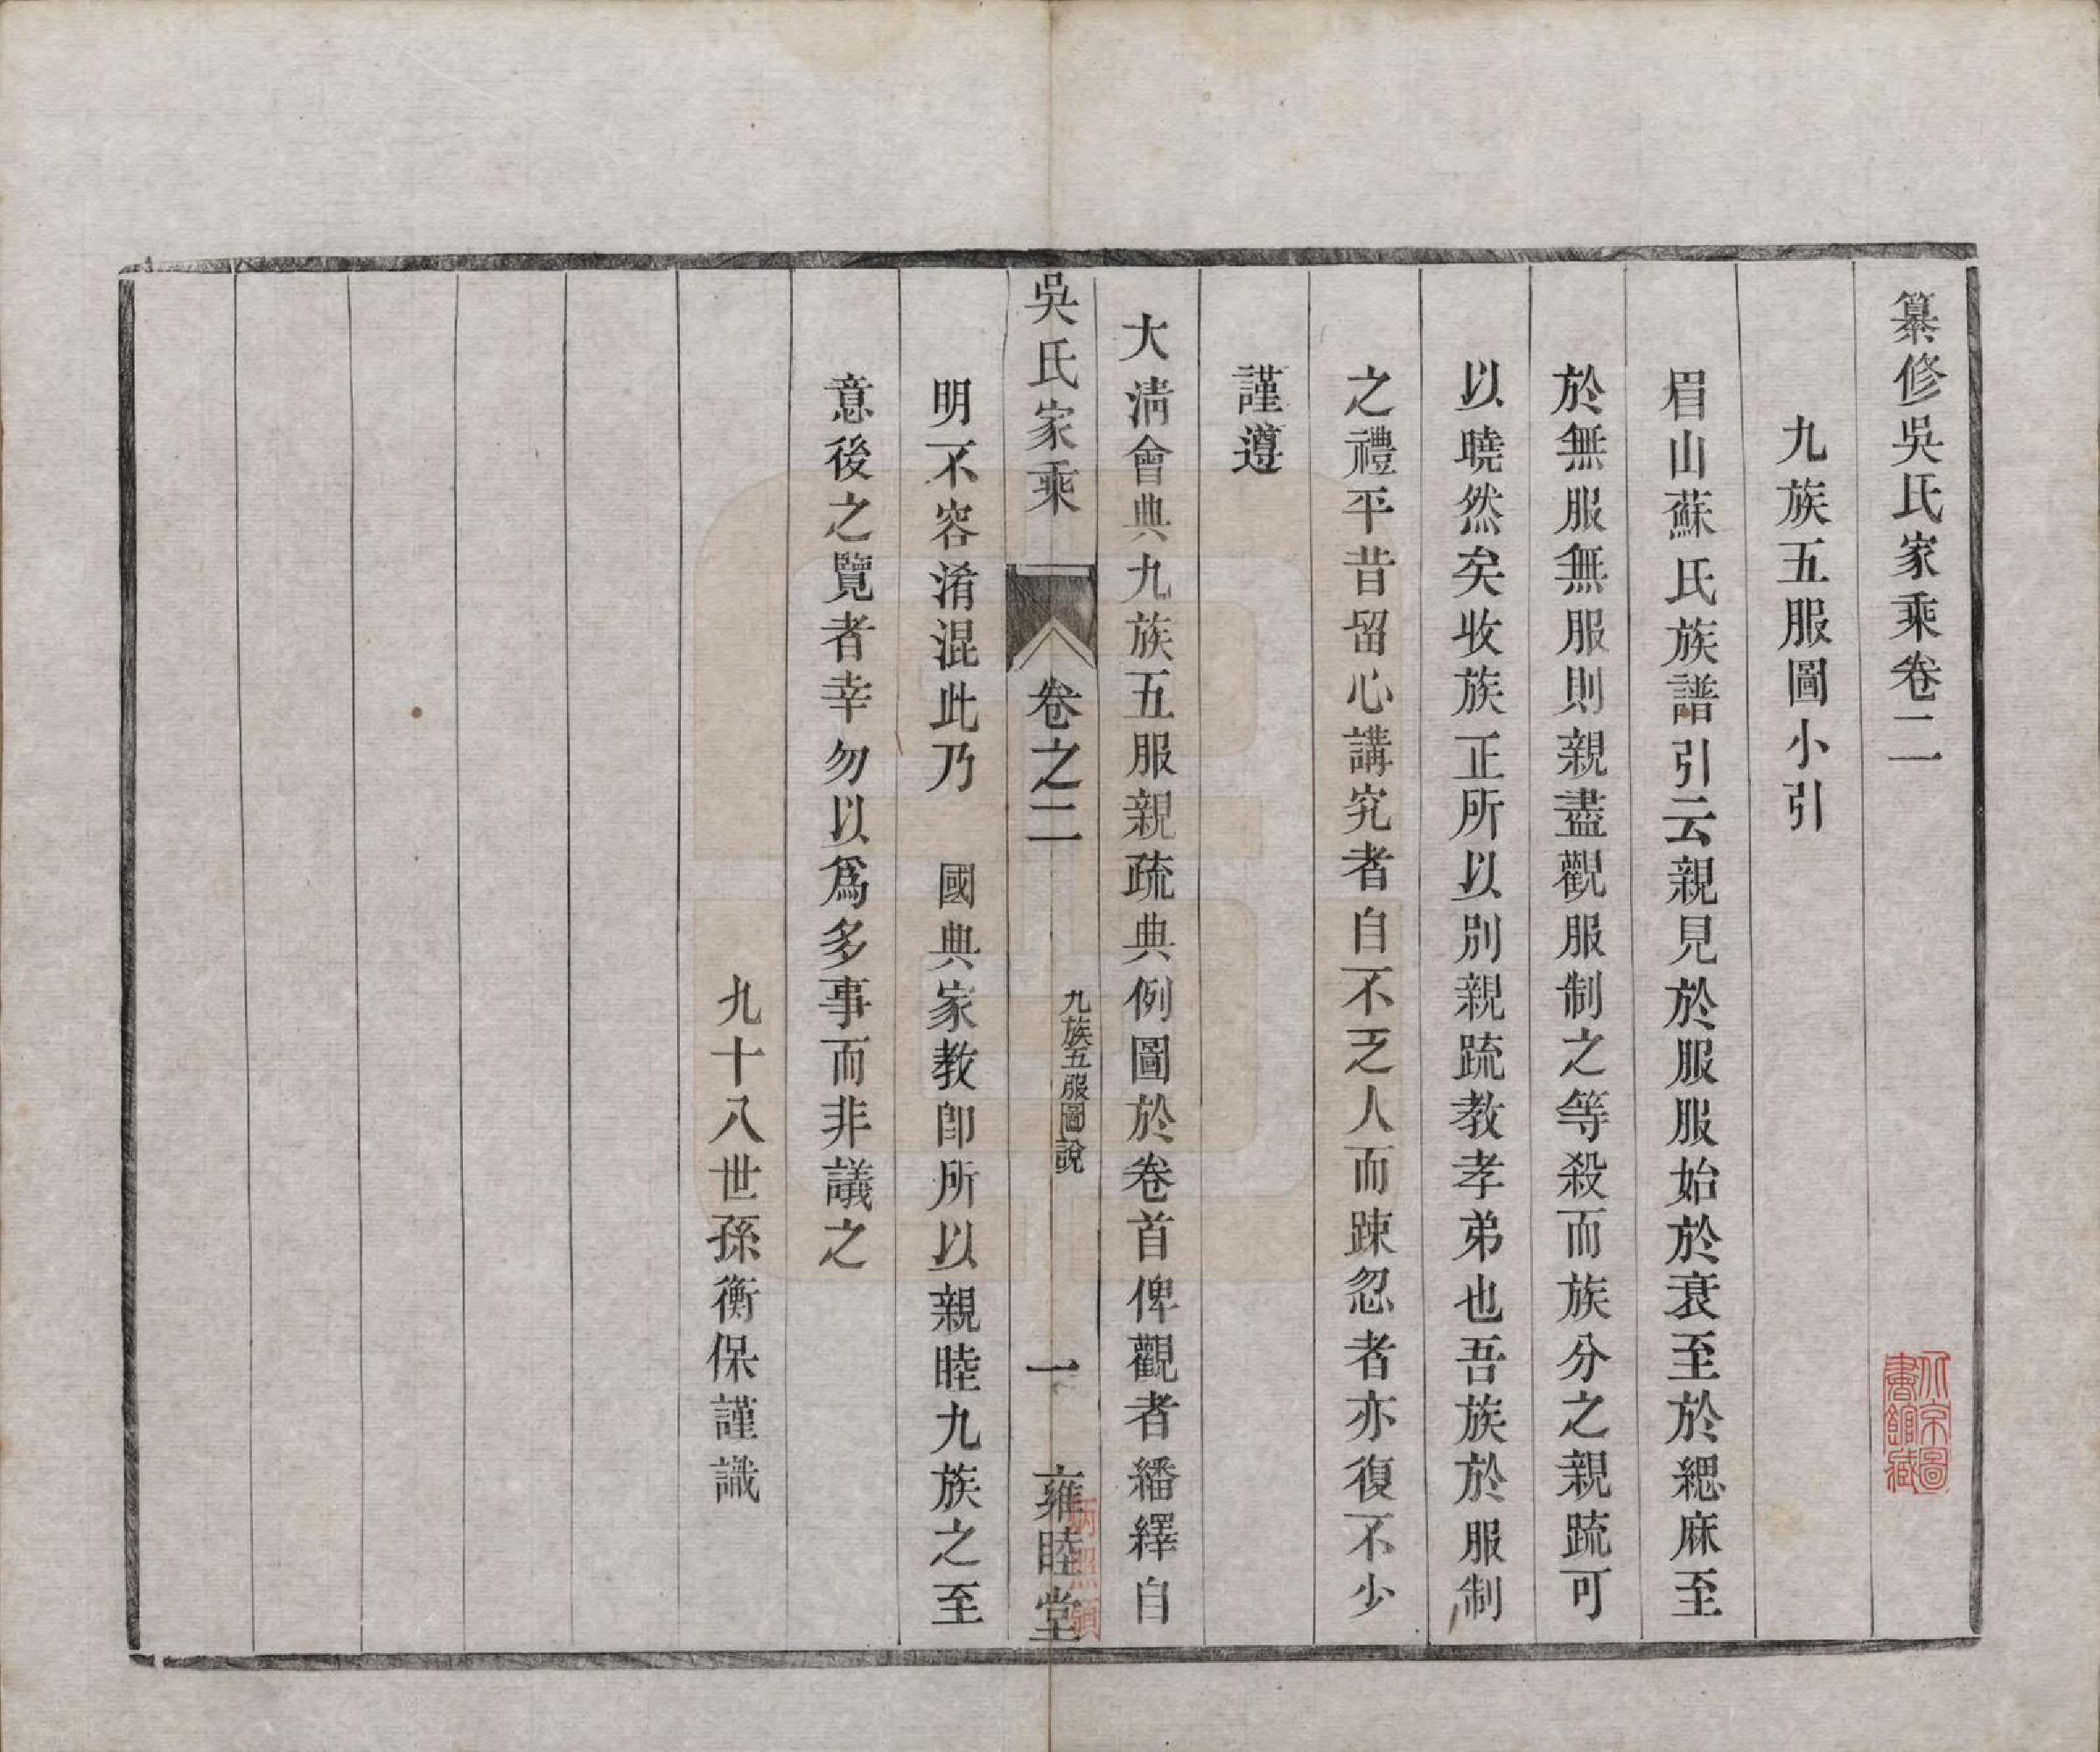 纂修吳氏家乘卷二
九族五服圖小引
眉山蘇氏族譜引云親見於服服始於衰至於緦麻至
於無服無服則親盡觀服制之等殺而族分之親䟽可
以曉然矣收族正所以別親䟽教孝弟也吾族於服制
之禮平昔留心講究者自不乏人而踈忽者亦復不少
謹遵
大清會典九族五服親疏典例圖於卷首俾觀者繙繹自
吳氏家乘 卷之二 九族五服圖說 一 雍睦堂
明不容淆混此乃 國典家教卽所以親睦九族之至
意後之覽者幸勿以爲多事而非議之
九十八世孫衡保謹識
北京圖書館藏